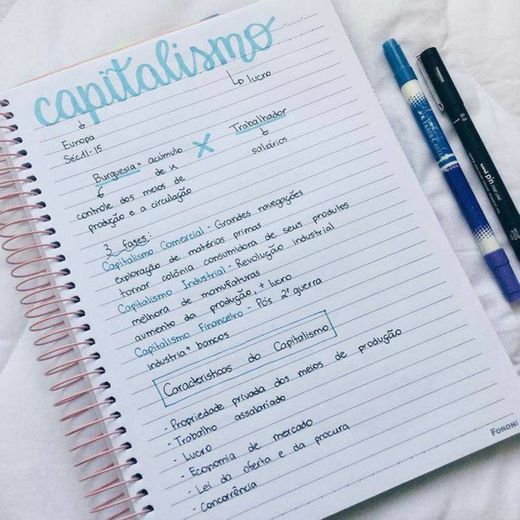 capitalismo
↳ lucro
Europa
Séc. 11-15
Burguesia = acúmulo de x
X
Trabalhador
salários
controle dos meios de
produção e a circulação
3 fases:
Capitalismo Comercial - Grandes navegações
exploração de matérias primas
tornar colônia consumidora de seus produtos
Capitalismo Industrial - Revolução industrial
melhora de manufaturas
aumento da produção, + lucro
Capitalismo Financeiro - Pós 2ª guerra
industria + bancos
Características do Capitalismo
- Propriedade privada dos meios de produção
- Trabalho assalariado
- Lucro
- Economia de mercado
- Lei da oferta e da procura
- Concorrência
FORONI